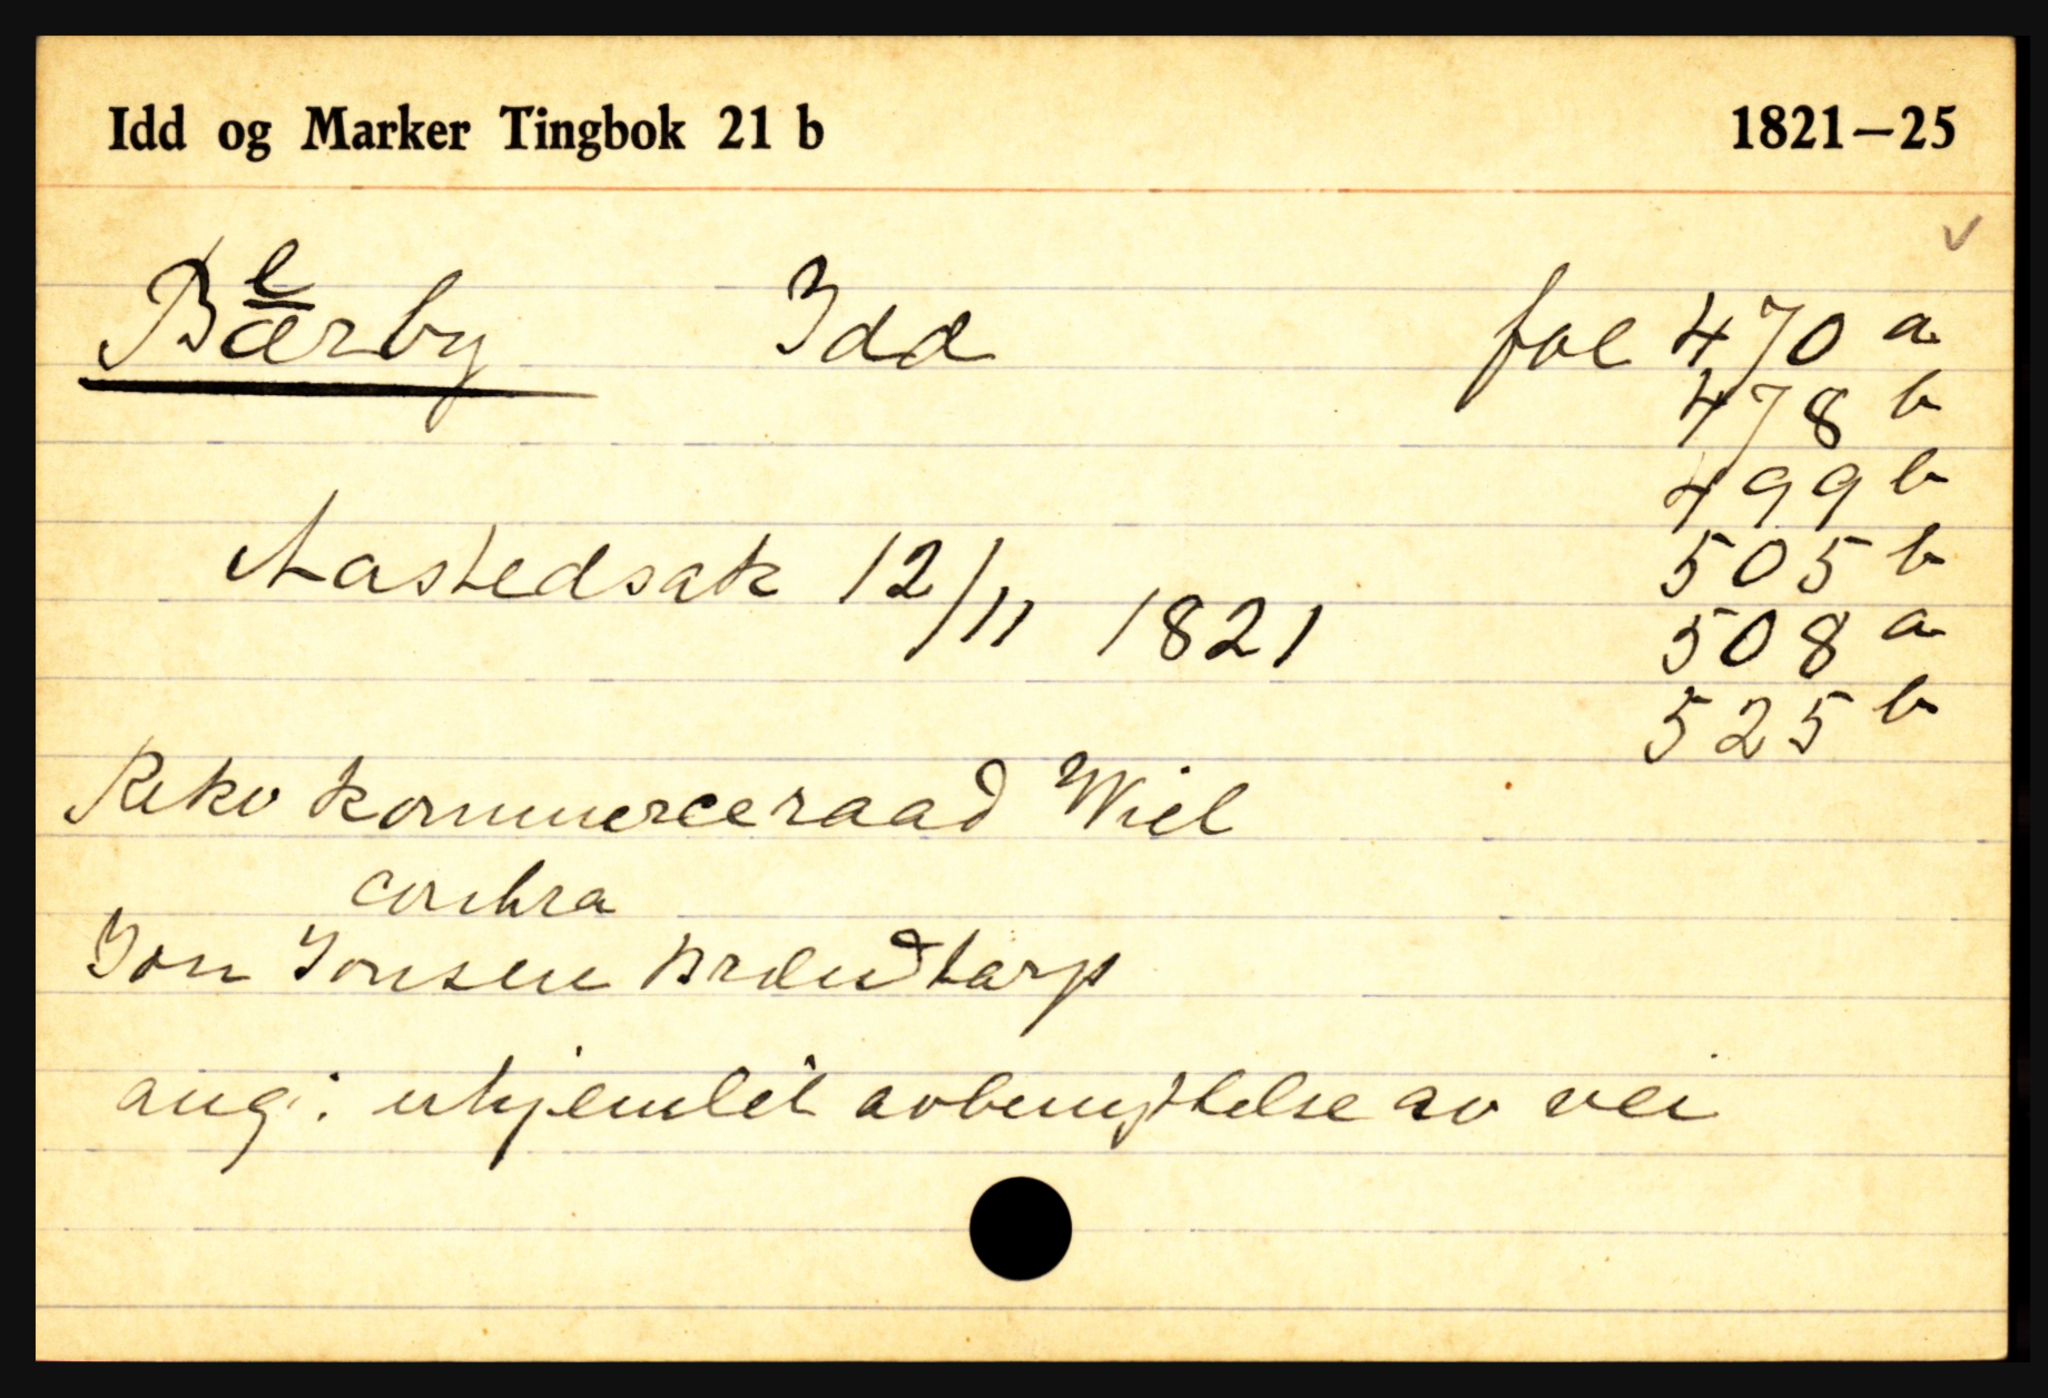 Idd og Marker Tingbok 21 b 1821—25
e
Bærby Idd fol 470 a
478 b
499 b
Aastedsak 12/11 1821 505 b
508 a
525 b
Rekv kommerceraad Wiel
contra
Jon Jonsen Brændtorp
ang: uhjemlet avbenyttelse av vei